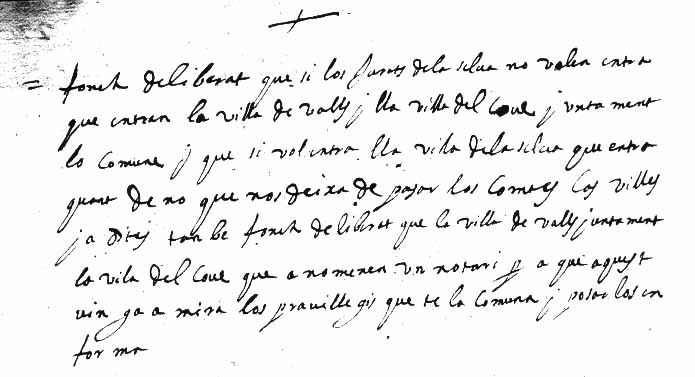 = fonch deliberat que si los Jurats dela selua no volen entra
que entran la villa de valls j lla villa del Coue juntament
lo Comune j que si vol entra lla vila dela selua que entra
quant de no que nos deixa de pasar los Comtes las villes
ja dites tanbe fonch deliberat que la villa de valls juntament
la vila del Coue que anomenen vn notari p a que aquest
vinga a mira los praville gis que te la Comuna j posar los en
forma